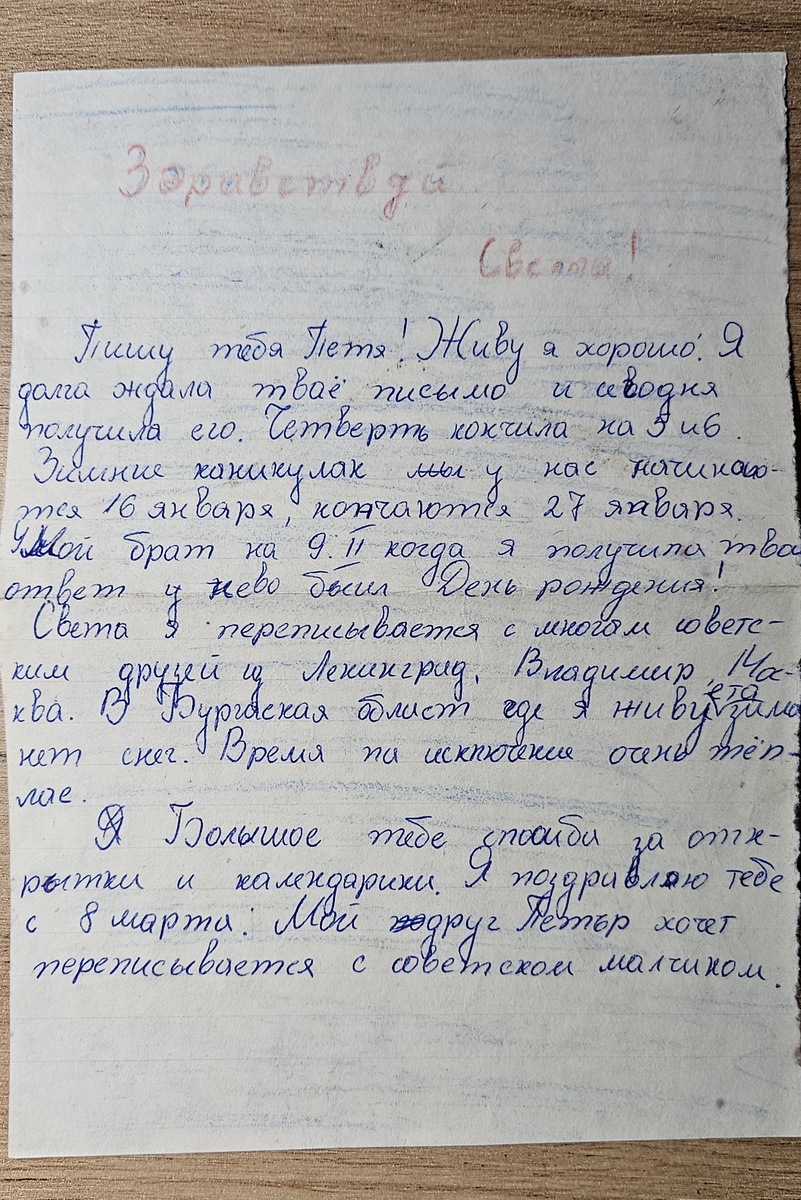 Здравствуй
Света!
Пишу тебя Петя! Живу я хорошо! Я
долга ждала тваё письмо и севодня
получила его. Четверть кончила на 5 и 6.
Зимние каникулах мы у нас начинаю-
тся 16 января, кончаются 27 января.
Мой брат на 9.II когда я получила тва
ответ у нево был День рождения!
Света я переписывается с многам советс-
ким друзей из Ленинград, Владимир, Мос-
ква. В Бургаская облист где я живу ета зима
нет снег. Время па исключение очень тёп-
лае.
Я Большое тебе спасиби за отк-
рытки и календарики. Я поздравляю тебе
с 8 марта! Мой друг Петър хочет
переписывается с советском малчиком.